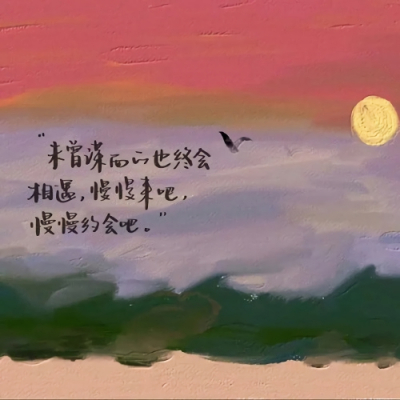 “未曾谋面的也终会
相遇，慢慢来吧，
慢慢约会吧。”